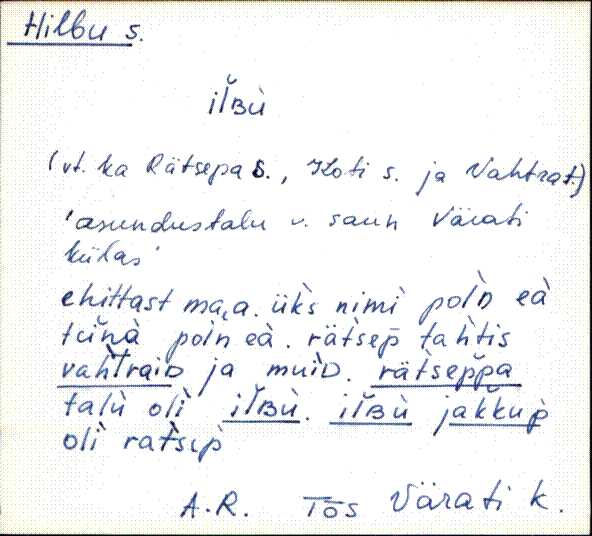 Hilbu s.
iľʙù
(vt. ka Rätsepa s., Koti s. ja Vahtrat.)
'asundustalu v. saun Värati
külas'
ehittast ma,a. ük̀s nimi pol̀ɴ eà
tĕinà pol̀n eà. rät̀sep̄ tah̀tis
vah̀traiᴅ ja muìᴅ. rät̀sep̆pa
talù olì iľʙù. iľʙù jak̆kup̄
olì rat̀sɪp̀
A.R. Tõs Värati k.